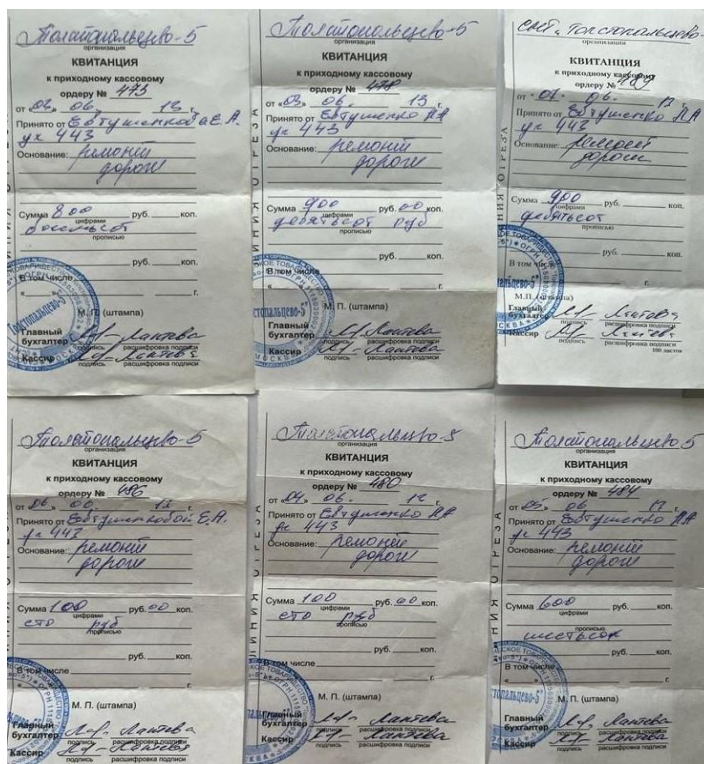 Толстопальцево-5
организация
КВИТАНЦИЯ
к приходному кассовому
ордеру № 473
от «02» 06. 13 г.
Принято от Евтушенкова Е.А.
уч 443
Основание: ремонт
дороги
Сумма 800 руб. коп.
цифрами
восемьсот
прописью
руб. коп.
В том числе
« » г.
М. П. (штампа)
Главный
бухгалтер Лаптева
подпись расшифровка подписи
Кассир Лаптева
подпись расшифровка подписи
Толстопальцево-5
организация
КВИТАНЦИЯ
к приходному кассовому
ордеру № 478
от «03» 06. 13 г.
Принято от Евтушенко
уч 443
Основание: ремонт
дороги
Сумма 900 руб. 00 коп.
цифрами
девятьсот руб
прописью
руб. коп.
В том числе
г.
М. П. (штампа)
Главный
бухгалтер Лаптева
подпись расшифровка подписи
Кассир Лаптева
подпись расшифровка подписи
Толстопальцево-
организация
КВИТАНЦИЯ
к приходному кассовому
ордеру № 489
от «07» 06. г.
Принято от Евтушенко
уч 443
Основание: ремонт
дороги
Сумма 900 руб. коп.
цифрами
девятьсот
прописью
руб. коп.
В том числе
г.
М.П. (штампа)
Главный
бухгалтер Лаптева
подпись расшифровка подписи
Кассир
подпись расшифровка подписи
100 листов
ЛИНИЯ ОТРЕЗА
Толстопальцево-5
организация
КВИТАНЦИЯ
к приходному кассовому
ордеру № 486
от «06» 06. г.
Принято от Евтушенковой Е.А.
уч 443
Основание: ремонт
дороги
Сумма 100 руб. 00 коп.
цифрами
сто руб
прописью
руб. коп.
В том числе
г.
М. П. (штампа)
Главный
бухгалтер Лаптева
подпись расшифровка подписи
Кассир Лаптева
подпись расшифровка подписи
Толстопальцево-5
организация
КВИТАНЦИЯ
к приходному кассовому
ордеру № 480
от «04» 06. г.
Принято от Евтушенко
уч 443
Основание: ремонт
дороги
Сумма 100 руб. 00 коп.
цифрами
сто руб
прописью
руб. коп.
В том числе
г.
М. П. (штампа)
Главный
бухгалтер Лаптева
подпись расшифровка подписи
Кассир Лаптева
подпись расшифровка подписи
Толстопальцево 5
организация
КВИТАНЦИЯ
к приходному кассовому
ордеру № 484
от «05» 06 г.
Принято от Евтушенко
уч 443
Основание: ремонт
дороги
Сумма 600 руб. коп.
цифрами
шестьсот
прописью
руб. коп.
В том числе
г.
М. П. (штампа)
Главный
бухгалтер Лаптева
подпись расшифровка подписи
Кассир Лаптева
подпись расшифровка подписи